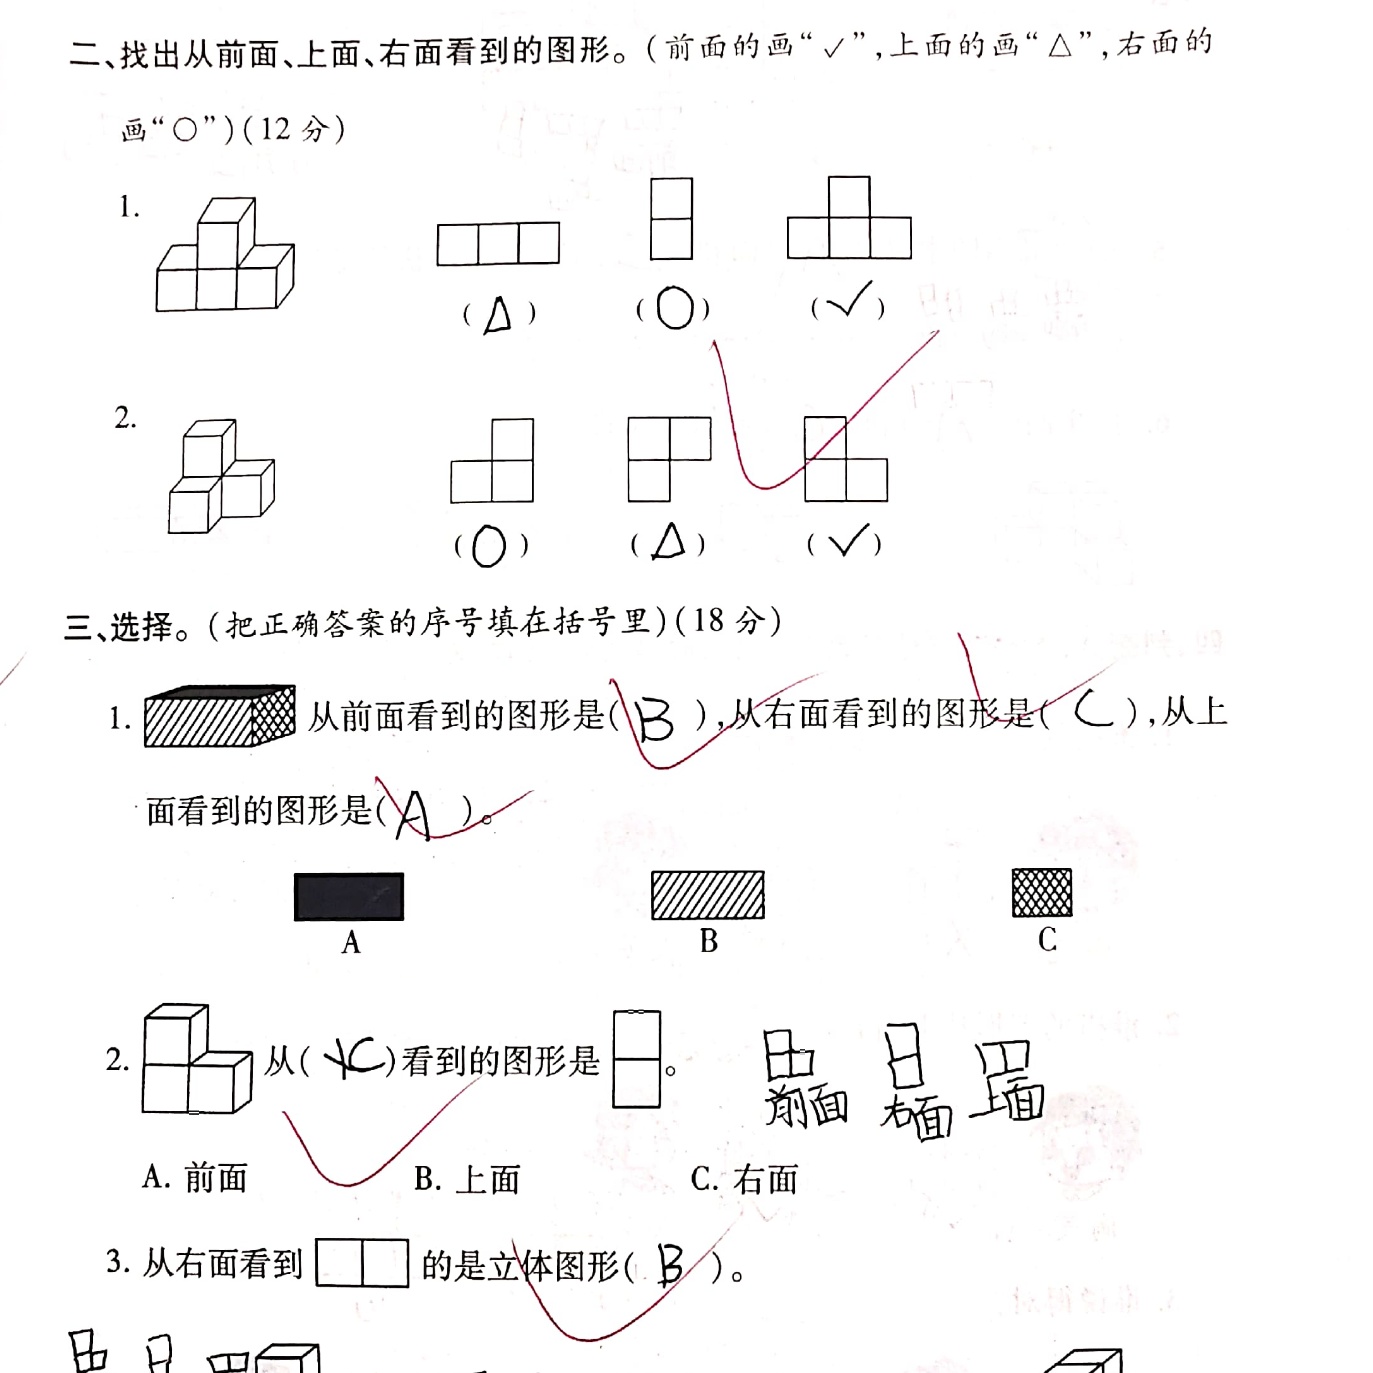 二、找出从前面、上面、右面看到的图形。(前面的画“✓”,上面的画“△”,右面的
画“○”)(12分)
1.
(△) (○) (✓)
2.
(○) (△) (✓)
三、选择。(把正确答案的序号填在括号里)(18分)
1. 从前面看到的图形是(B),从右面看到的图形是(C),从上
面看到的图形是(A)。
A B C
2. 从(C)看到的图形是 。
前面 右面 上面
A. 前面 B. 上面 C. 右面
3. 从右面看到 的是立体图形(B)。